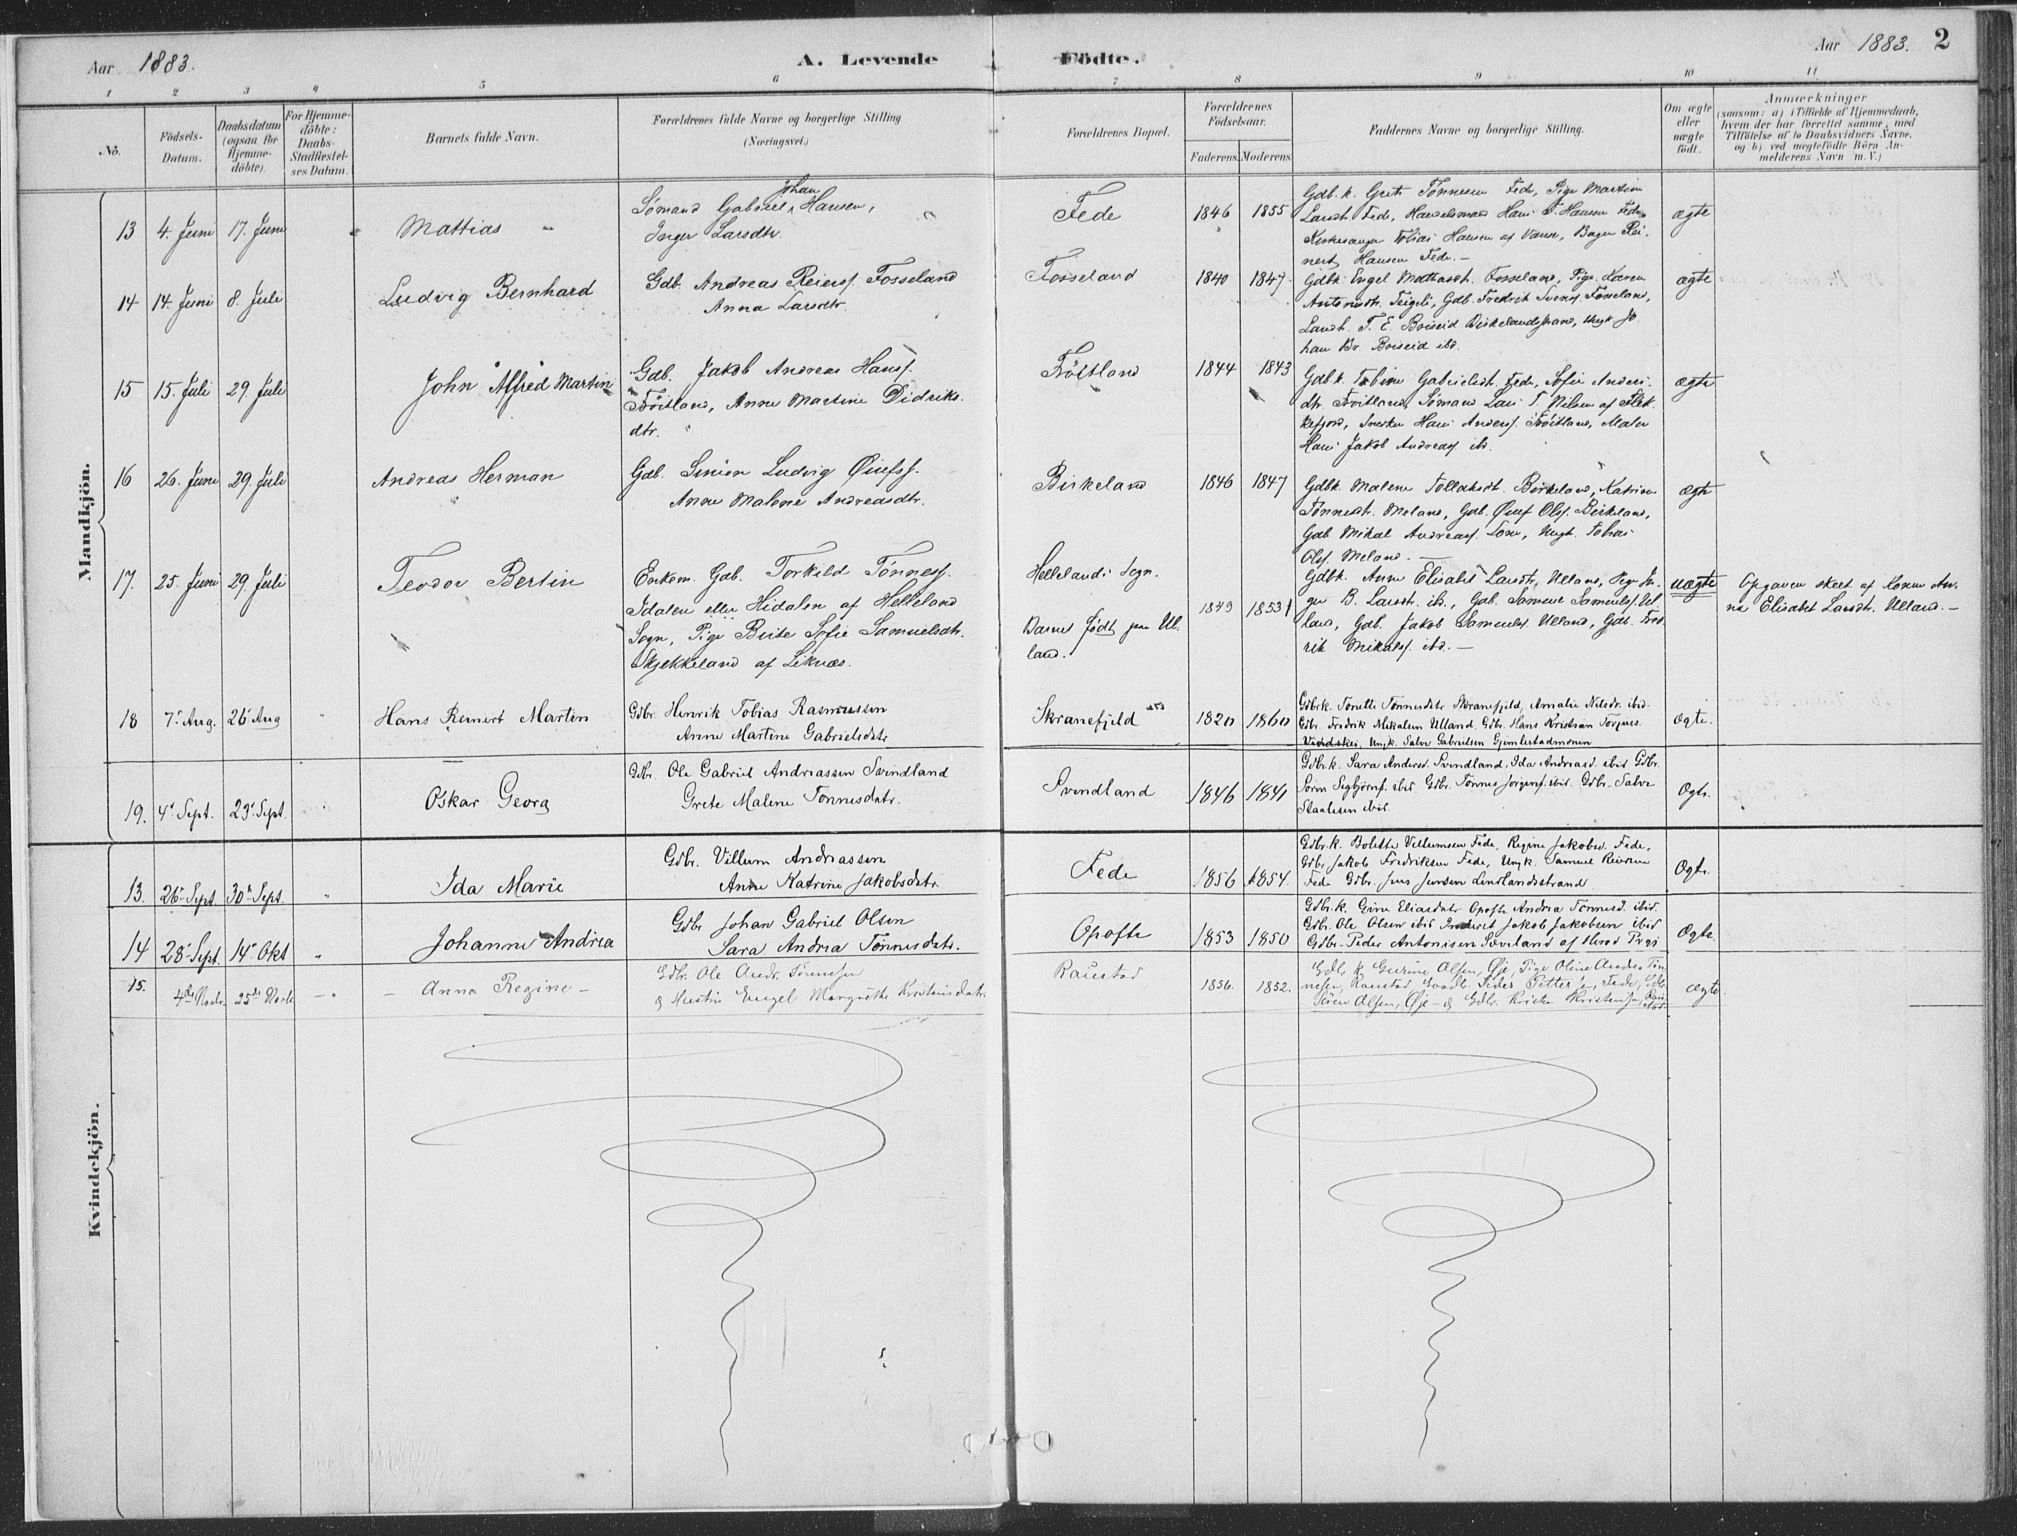 Aar 1883.
A. Levende Födte.
Aar 1883. 2
1 2 3 4 5 6 7 8 9 10 11
No.
Födsels-Datum.
Daabsdatum (ogsaa for Hjemme-döbte).
For Hjemme-döbte: Daabs-Stadfæstel-ses Datum.
Barnets fulde Navn.
Forældrenes fulde Navne og borgerlige Stilling (Næringsvei.)
Forældrenes Bopæl.
Forældrenes Födselsaar.
Faderens. Moderens.
Faddernes Navne og borgerlige Stilling.
Om ægte eller uægte födt.
Anmærkninger
(saasom: a) i Tilfælde af Hjemmedaab,
hvem der har forrettet samme, med
Tilföielse af to Daabsvidners Navne,
og b) ved uægtefödte Börn An-
melderens Navn m. V.)
Mandkjön.
13 4. Juni 17. Juni
Mattias
Sømand Gabriel Johan Hansen,
Inger Larsdtr.
Fede
1846 1855
Gdb.k. Grete Tønnesen Fede, Pige Martine
Larsdt. Fede, Handelsmand Hans T. Hansen Fede,
Kirkesanger Tobias Hansen af Vanse, Bager Rei-
nert Hansen Fede.-
ægte
14 14. Juni 8. Juli
Ludvig Bernhard
Gdb. Andreas Reiersf. Fosseland
Anna Larsdtr.
Fosseland
1840 1847.
Gdbk. Engel Mathiasdt. Fosseland, Pige Karen
Antonsdtr. Teigeli, Gdb. Fredrik Svensf. Fosseland,
Landh. T. E. Briseid Birkelandsstrand, Ungk. Jo-
han Br. Briseid ibd.
ægte
15 15. Juli 29. Juli
John Alfred Martin
Gdb. Jakob Andreas Hansf.
Frøitland, Anne Martine Didriks-
dtr.
Frøitland
1844 1843
Gdb.k. Tobine Gabrielsdt. Fede, Sofie Anders-
dtr. Frøitland, Sømand Lars T. Nilsen af Flek-
kefjord, Snedker Hans Andersf. Frøitland, Maler
Hans Jakob Andreasf. ibd.
ægte
16 26. Juni 29. Juli
Andreas Herman
Gdb. Simon Ludvig Øiufsf.
Anne Malene Andreasdtr.
Birkeland
1846 1847
Gdbk. Malene Tollaksdt. Birkeland, Katrine
Tønnesdt. Meland, Gdb. Øiuf Olsf. Birkeland,
Gdb Mikal Andreasf. Ungk. Tobias
Olsf. Meland. -
ægte
17. 25. Juni 29. Juli
Teodor Bertin
Enkem. Gdb. Torkild Tønnesf.
Idalen eller Hidalen af Helleland
Sogn, Pige Berte Sofie Samuelsdtr.
Skjekkeland af Liknæs.
Hellelands Sogn.
Barnet født paa Ul-
land.
1843 1853
Gdbk. Anne Elisabet Larsdtr. Ulland, Pige In-
ger B. Larsdt. ibd., Gdb. Samuel Samuelsf. Ul-
land, Gdb. Jakob Samuelsf. Ulland, Gdb. Fred-
rik Mikalsf. ibd. -
uægte
Opgaven skeet af Konen An-
na Elisabet Larsdt. Ulland. -
18 7' Aug. 26' Aug
Hans Reinert Martin
Gdbr. Henrik Tobias Rasmussen
Anne Martine Gabrielsdatr
Skranefjeld
1820 1860
Gdbrk. Tonette Tønnesdatr Skranefjeld, Amalie Nilsdr. ibid.
Gdbr. Fredrik Mikalsen Ulland, Gdbr. Hans Kristian Torjuss.
Ungk. Salve Gabrielsen Gjemlestadmonen
ægte.
19. 4' Sept. 23' Sept.
Oskar Georg
Gdbr. Ole Gabriel Andreassen Svindland
Grete Malene Tønnesdatr.
Svindland
1846 1841
Gdbr.k. Sara Andersd. Svindland, Ida Andreasd. ibid. Gdbr.
Søren Segbjørnsf. ibid. Gdbr. Tønnes Jørgensf. ibid. Gdbr. Salve
Staalesen ibid.
Ægte.
Kvindekjön.
13. 26' Sept. 30' Sept.
Ida Marie
Gdbr. Villum Andreassen
Anne Katrine Jakobsdatr
Fede
1856 1854.
Gdbr.k. Bolette Villumsen Fede, Regine Jakobsd. Fede,
Gdbr. Jakob Fredriksen Fede, Ungk. Samuel Reiersen
Fede Gdbr. Jens Jensen Lindlandsstrand
Ægte.
14 28' Sept. 14' Okt
Johanne Andrea
Gdbr Johan Gabriel Olsen
Sara Andrea Tønnesdatr.
Opofte
1853 1850
Gdbr.k. Gine Eliasdatr Opofte Andrea Tønnesd. ibid.
Gdbr. Ole Olsen ibid Inderst Jakob Jakobsen ibid
Gdbr. Peder Antonisen Sæveland af Herad Prgj
Ægte.
15. 4de Novbr. 25de Novbr
Anna Regine -
Gdbr. Ole Andr. Tønnesen
& Hustru Engel Margrethe Kristensdatr.
Raustad
1856. 1852.
Gdb. k Gurine Olsen, Øje, Pige Oline Andrea Tøn-
nesen, Raustad, Peder Fede, Gdb.
Søren Olsen, Øje - & Gdbr. Kristen Kristensen, Rau-
stad.
ægte